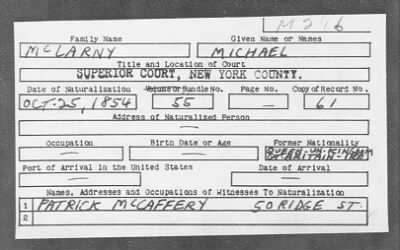 M246
Family Name Given Name or Names
McLARNY MICHAEL
Title and Location of Court
SUPERIOR COURT, NEW YORK COUNTY.
Date of Naturalization Volume or Bundle No. Page No. Copy of Record No.
OCT. 25, 1854 55 — 61
Address of Naturalized Person
—
Occupation Birth Date or Age Former Nationality
— — QUEEN-UN-KINGDOM
Port of Arrival in the United States Date of Arrival
— —
Names, Addresses and Occupations of Witnesses To Naturalization
1 PATRICK McCAFFERY 50 RIDGE ST.
2